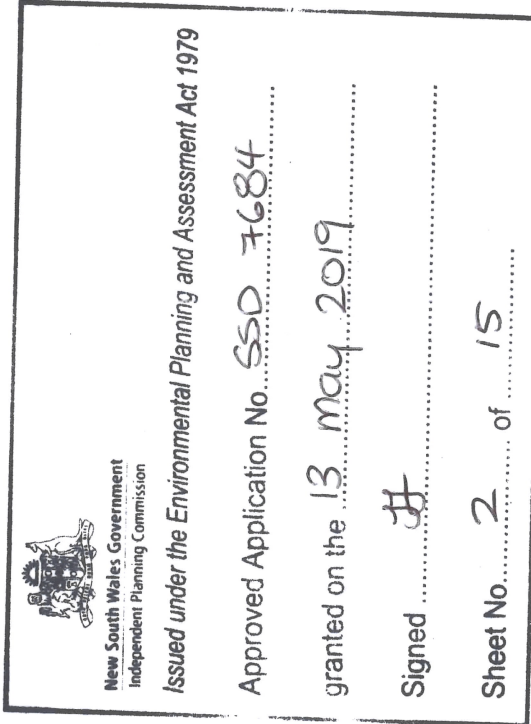 New South Wales Government
Independent Planning Commission
Issued under the Environmental Planning and Assessment Act 1979
Approved Application No. SSD 7684
granted on the 13 May 2019
Signed
Sheet No. 2 of 15